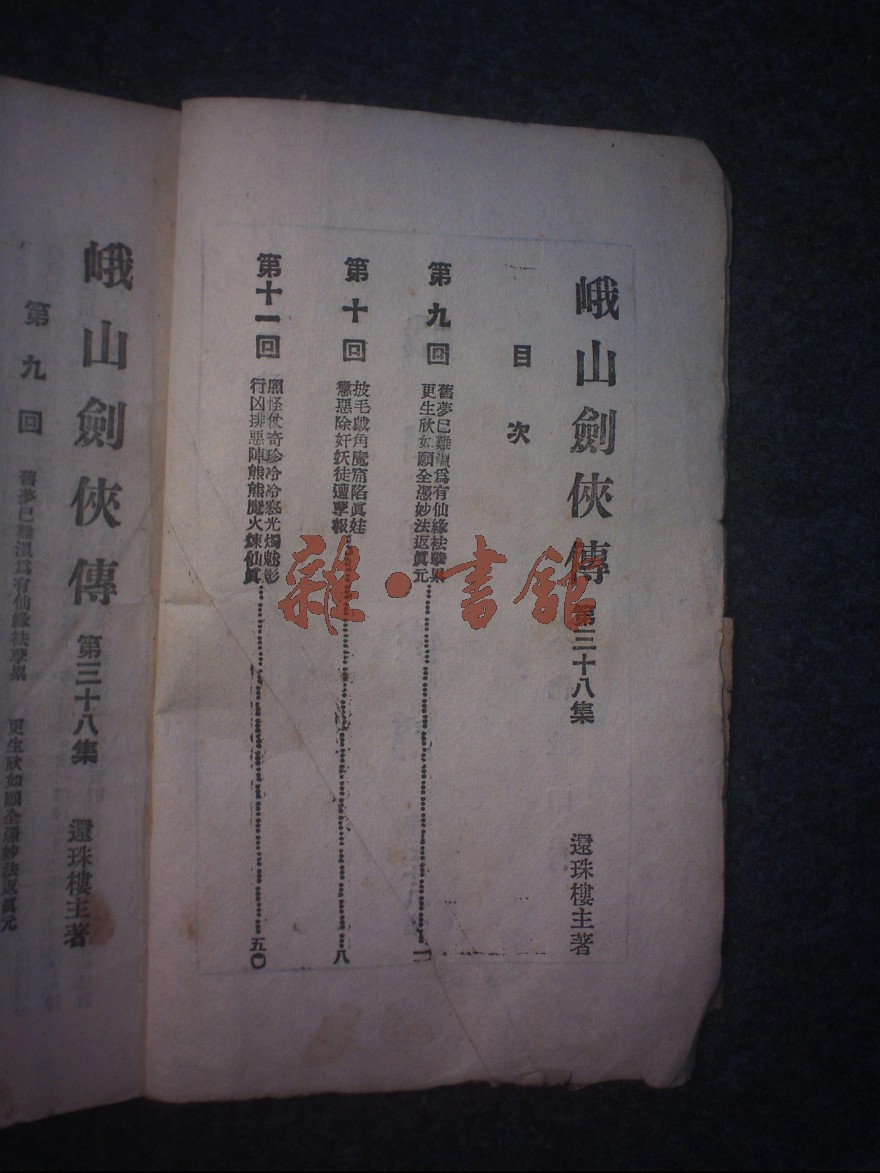 峨山劍俠傳 第三十八集 還珠樓主著
目次
第九回 舊夢已難溫為有仙緣袪孽累
更生欣如願全憑妙法返眞元 一
第十回 披毛戴角魔窟陷眞娃
懲惡除奸妖徒遭孽報 八
第十一回 照怪仗奇珍冷冷寒光燭魅影
行凶排惡陣熊熊魔火煉仙眞 五〇
峨山劍俠傳 第三十八集 還珠樓主著
第九回 舊夢已難溫為有仙緣袪孽累 更生欣如願全憑妙法返眞元
雜·書舘